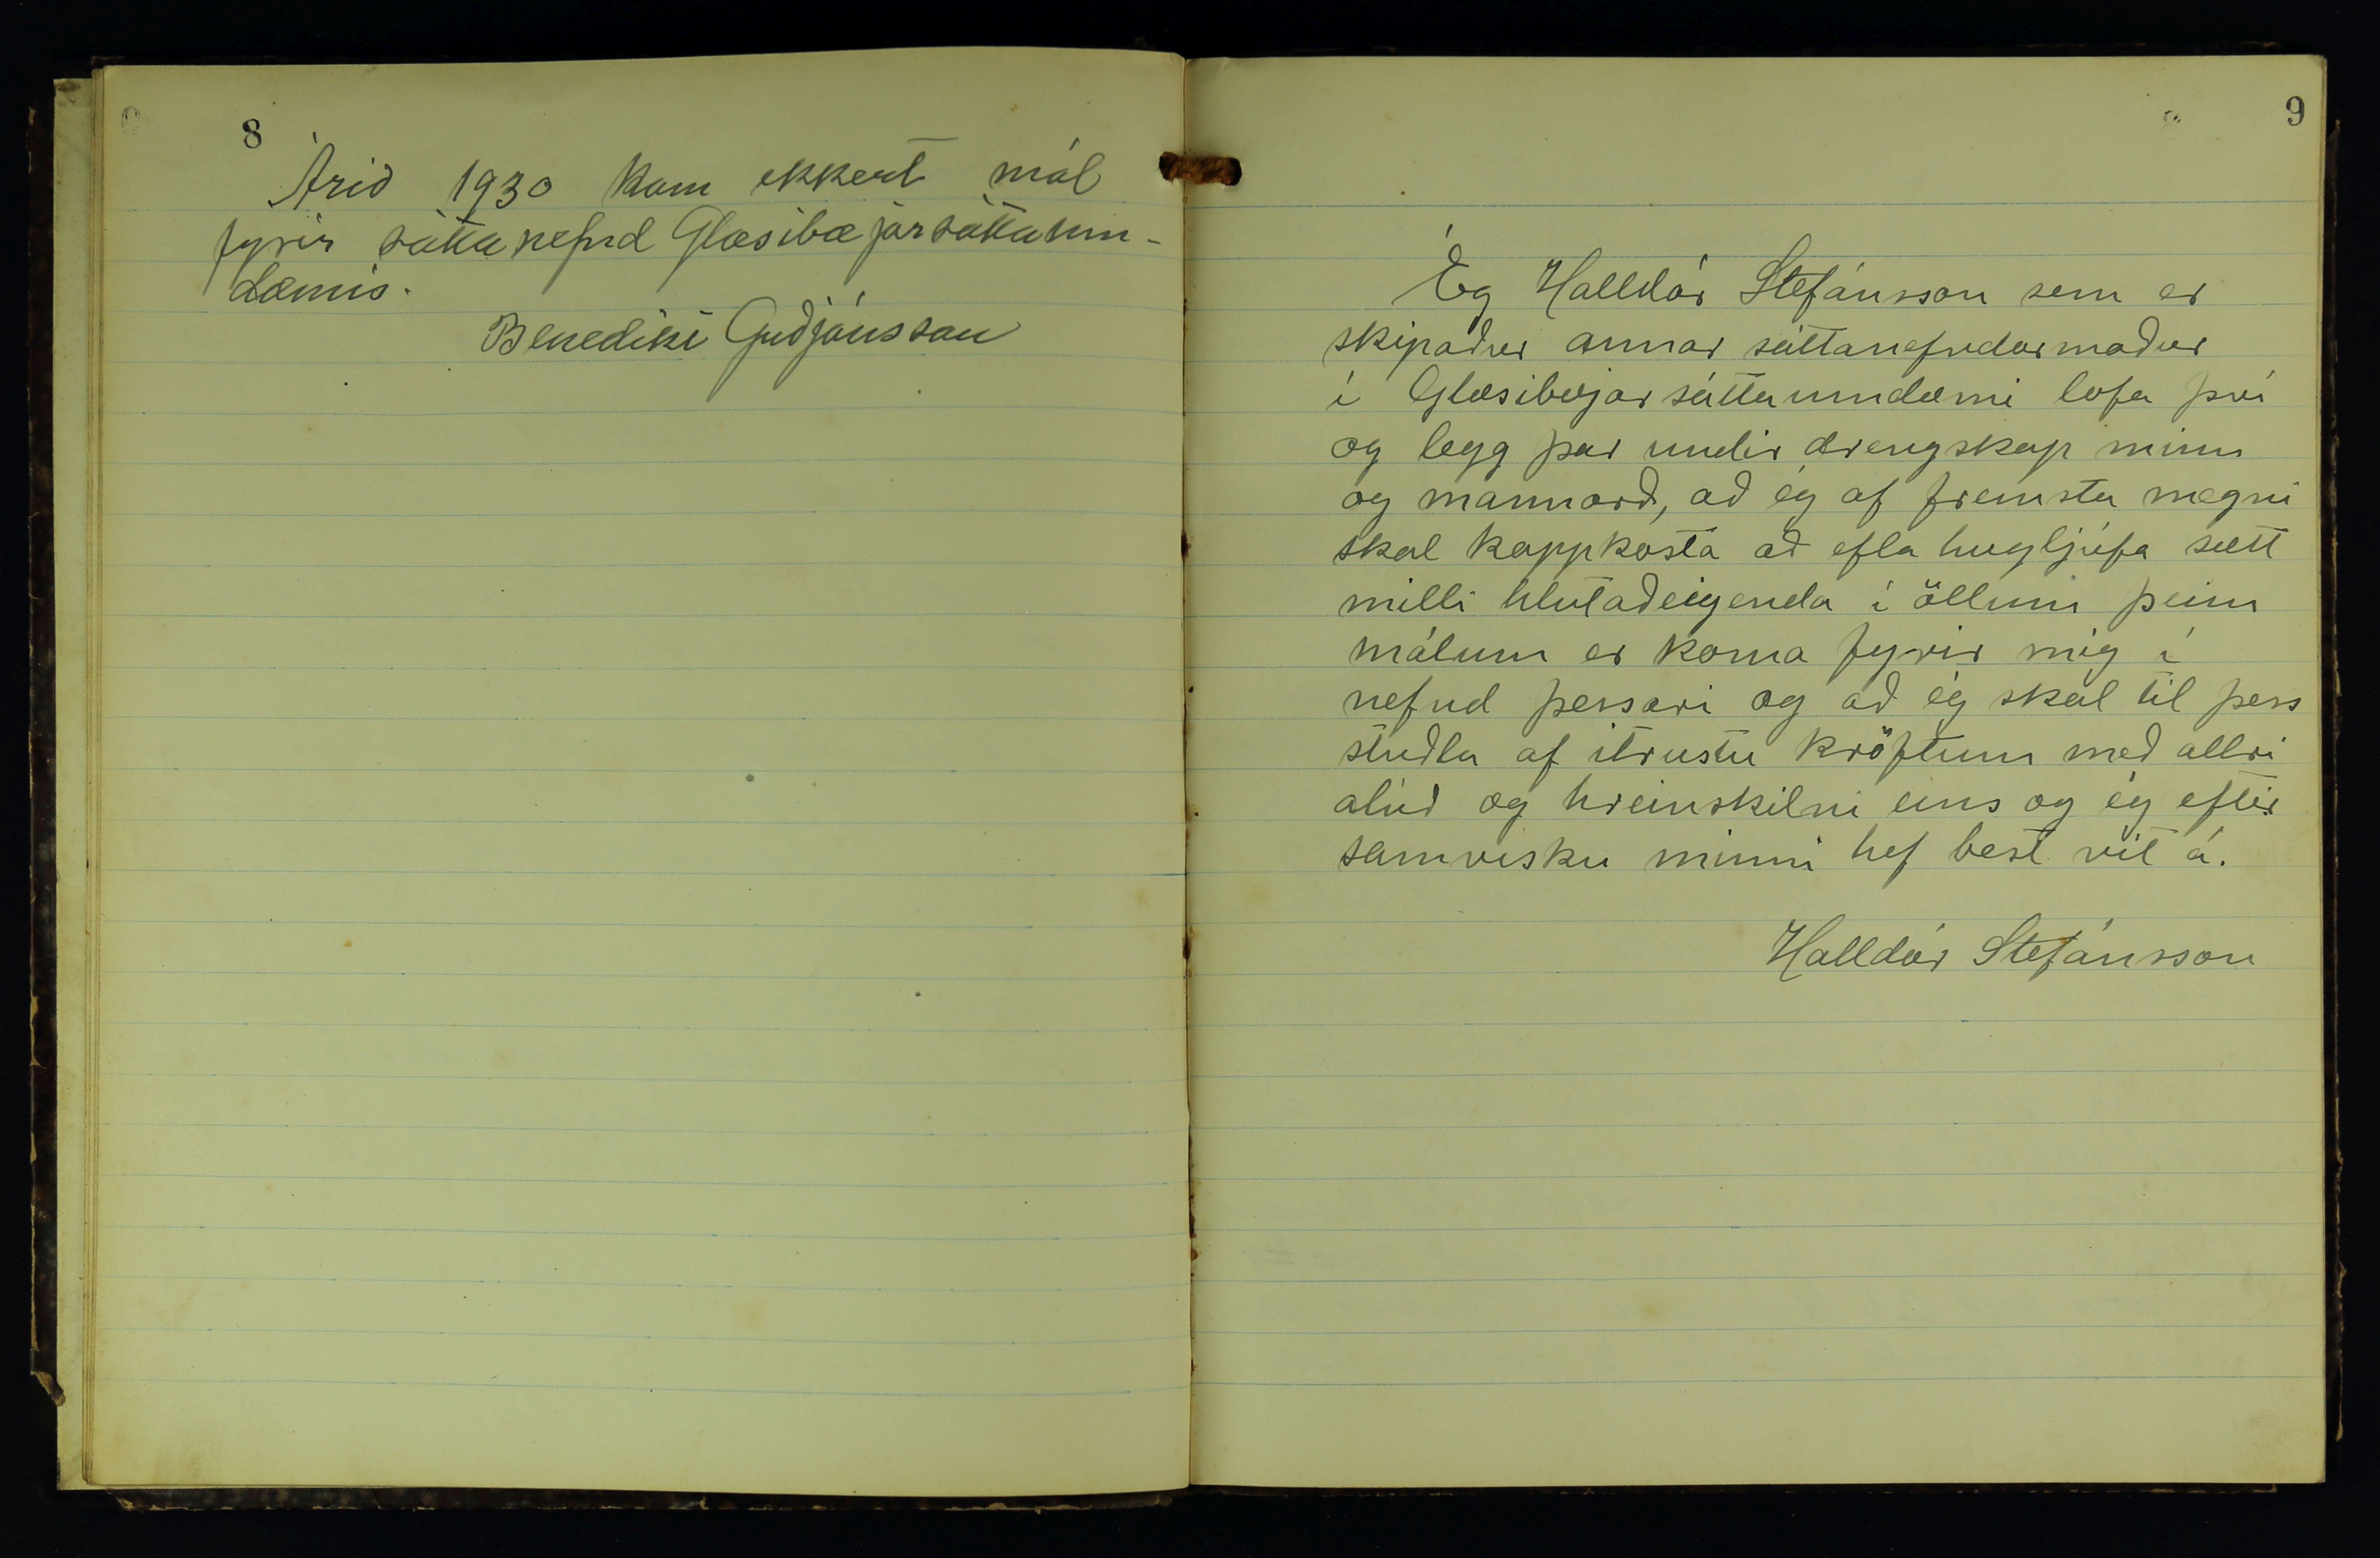 8
Árið 1930 kom ekkert mál
fyrir sáttanefnd Glæsibæjarsáttaum-
dæmis.
Benedikt Guðjónsson
9
Ég Halldór Stefánsson sem er
skipaður annar sáttanefndarmaður
í Glæsibæjarsáttaumdæmi lofa því
og legg þar undir drengskap minn
og mannorð, að ég af fremsta megni
skal kappkosta að efla hugljúfa sætt
milli hlutaðeigenda í öllum þeim
málum er koma fyrir mig í
nefnd þessari og að ég skal til þess
stuðla af ítrustu kröftum með allri
alúð og hreinskilni eins og ég eftir
samvisku minni hef best vit á.
Halldór Stefánsson